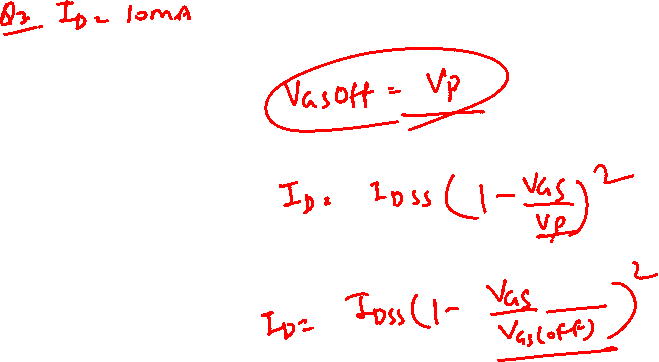 Q3 I_D = 10mA
V_GSOff = V_P
I_D = I_DSS (1 - V_GS / V_P)^2
I_D = I_DSS (1 - V_GS / V_GS(off))^2